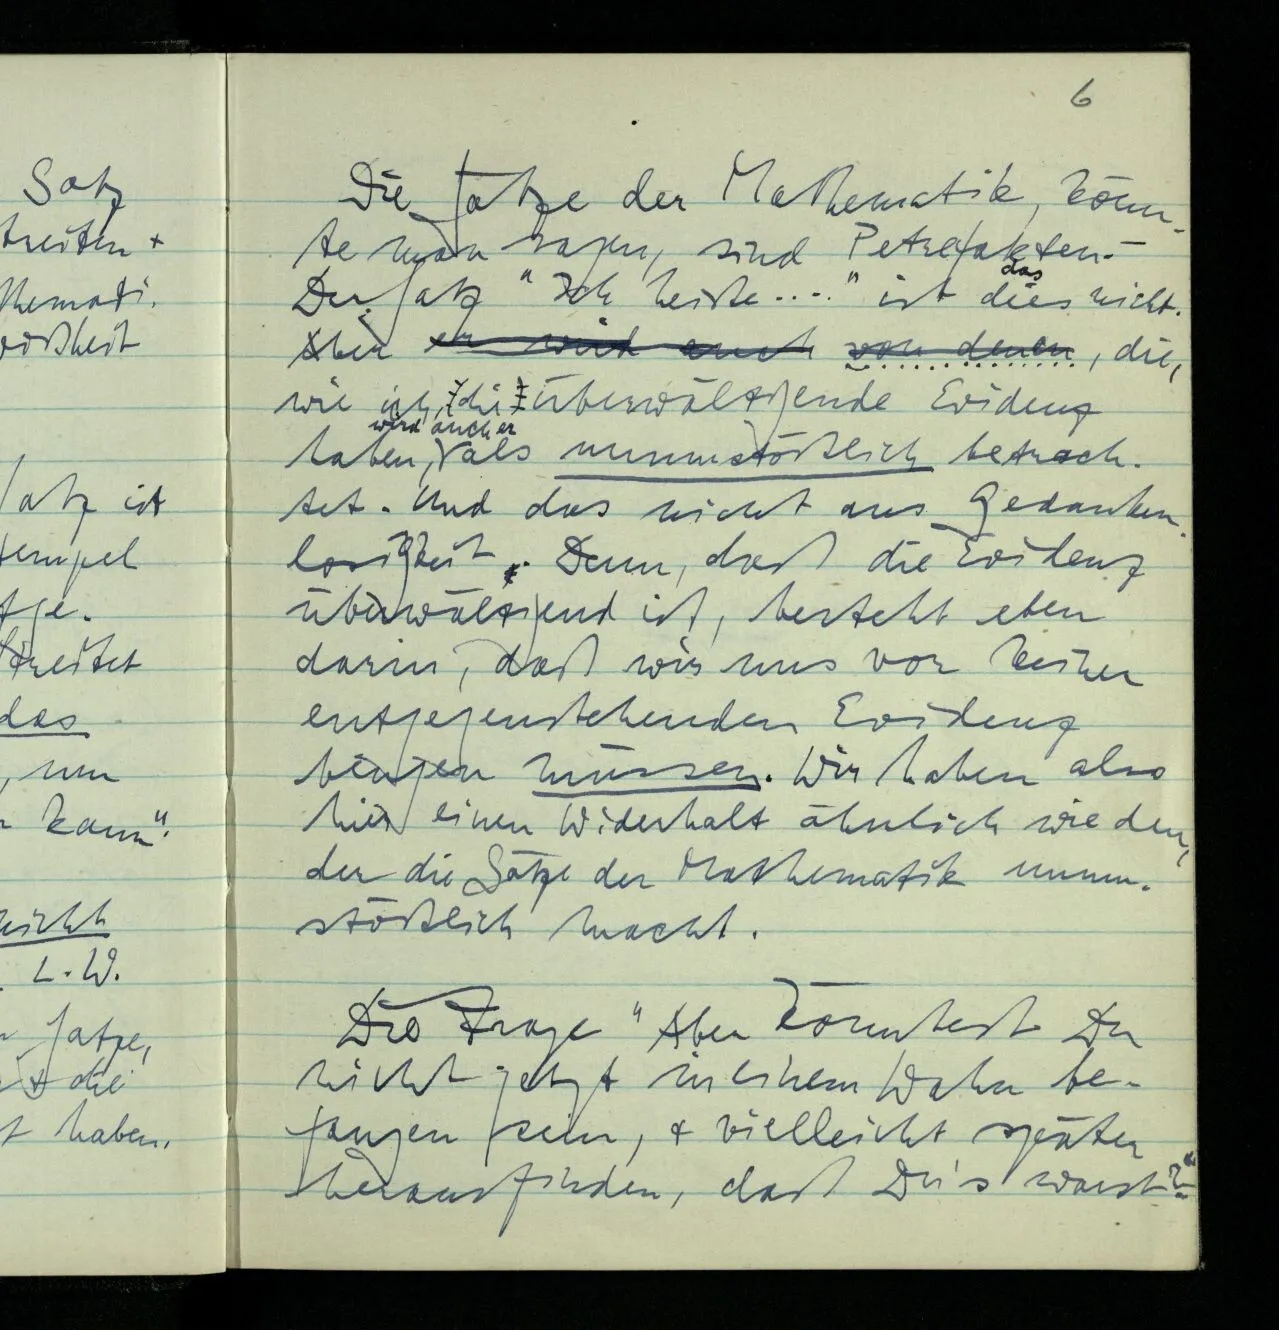 Satz
treiten +
themati-
oßheit
Satz ist
tempel
das
, um
kann".
nicht
L.W.
Sätze,
& die
t haben.
6
Die Sätze der Mathematik, könn-
te man sagen, sind Petrefakten. –
Der Satz "Ich heiße...." ist das dies nicht.
Aber er wird auch von denen, die,
wie ich, die überwältigende Evidenz
haben, wird auch er als unumstößlich betrach-
tet. Und das nicht aus Gedanken-
losigkeit. Denn, daß die Evidenz
überwältigend ist, besteht eben
darin, daß wir uns vor keiner
entgegenstehenden Evidenz
beugen müssen. Wir haben also
hier einen Widerhalt ähnlich wie den,
der die Sätze der Mathematik unum-
stößlich macht.
Die Frage "Aber könntest Du
nicht jetzt in einem Wahn be-
fangen sein, & vielleicht später
herausfinden, daß Du's warst?" –